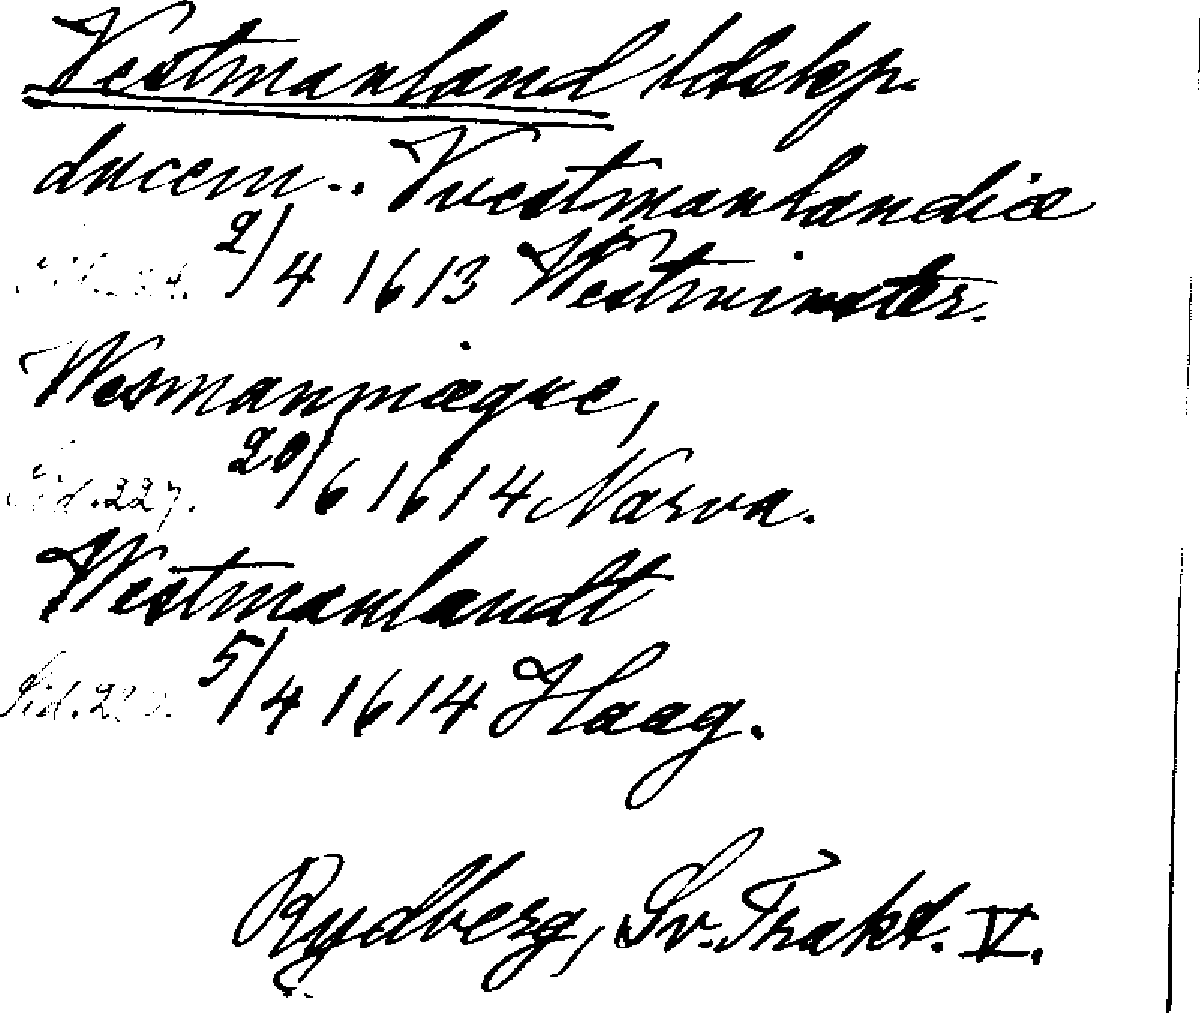 Vestmanland ldskp.
ducem.. Vuestmanlandiæ
2/4 1613 Westminster.
Wesmanniægne,
Sid. 227. 20/6 1614 Narva.
Westmanlandt
Sid. 5/4 1614 Haag.
Rydberg, Sv. Trakt. V.